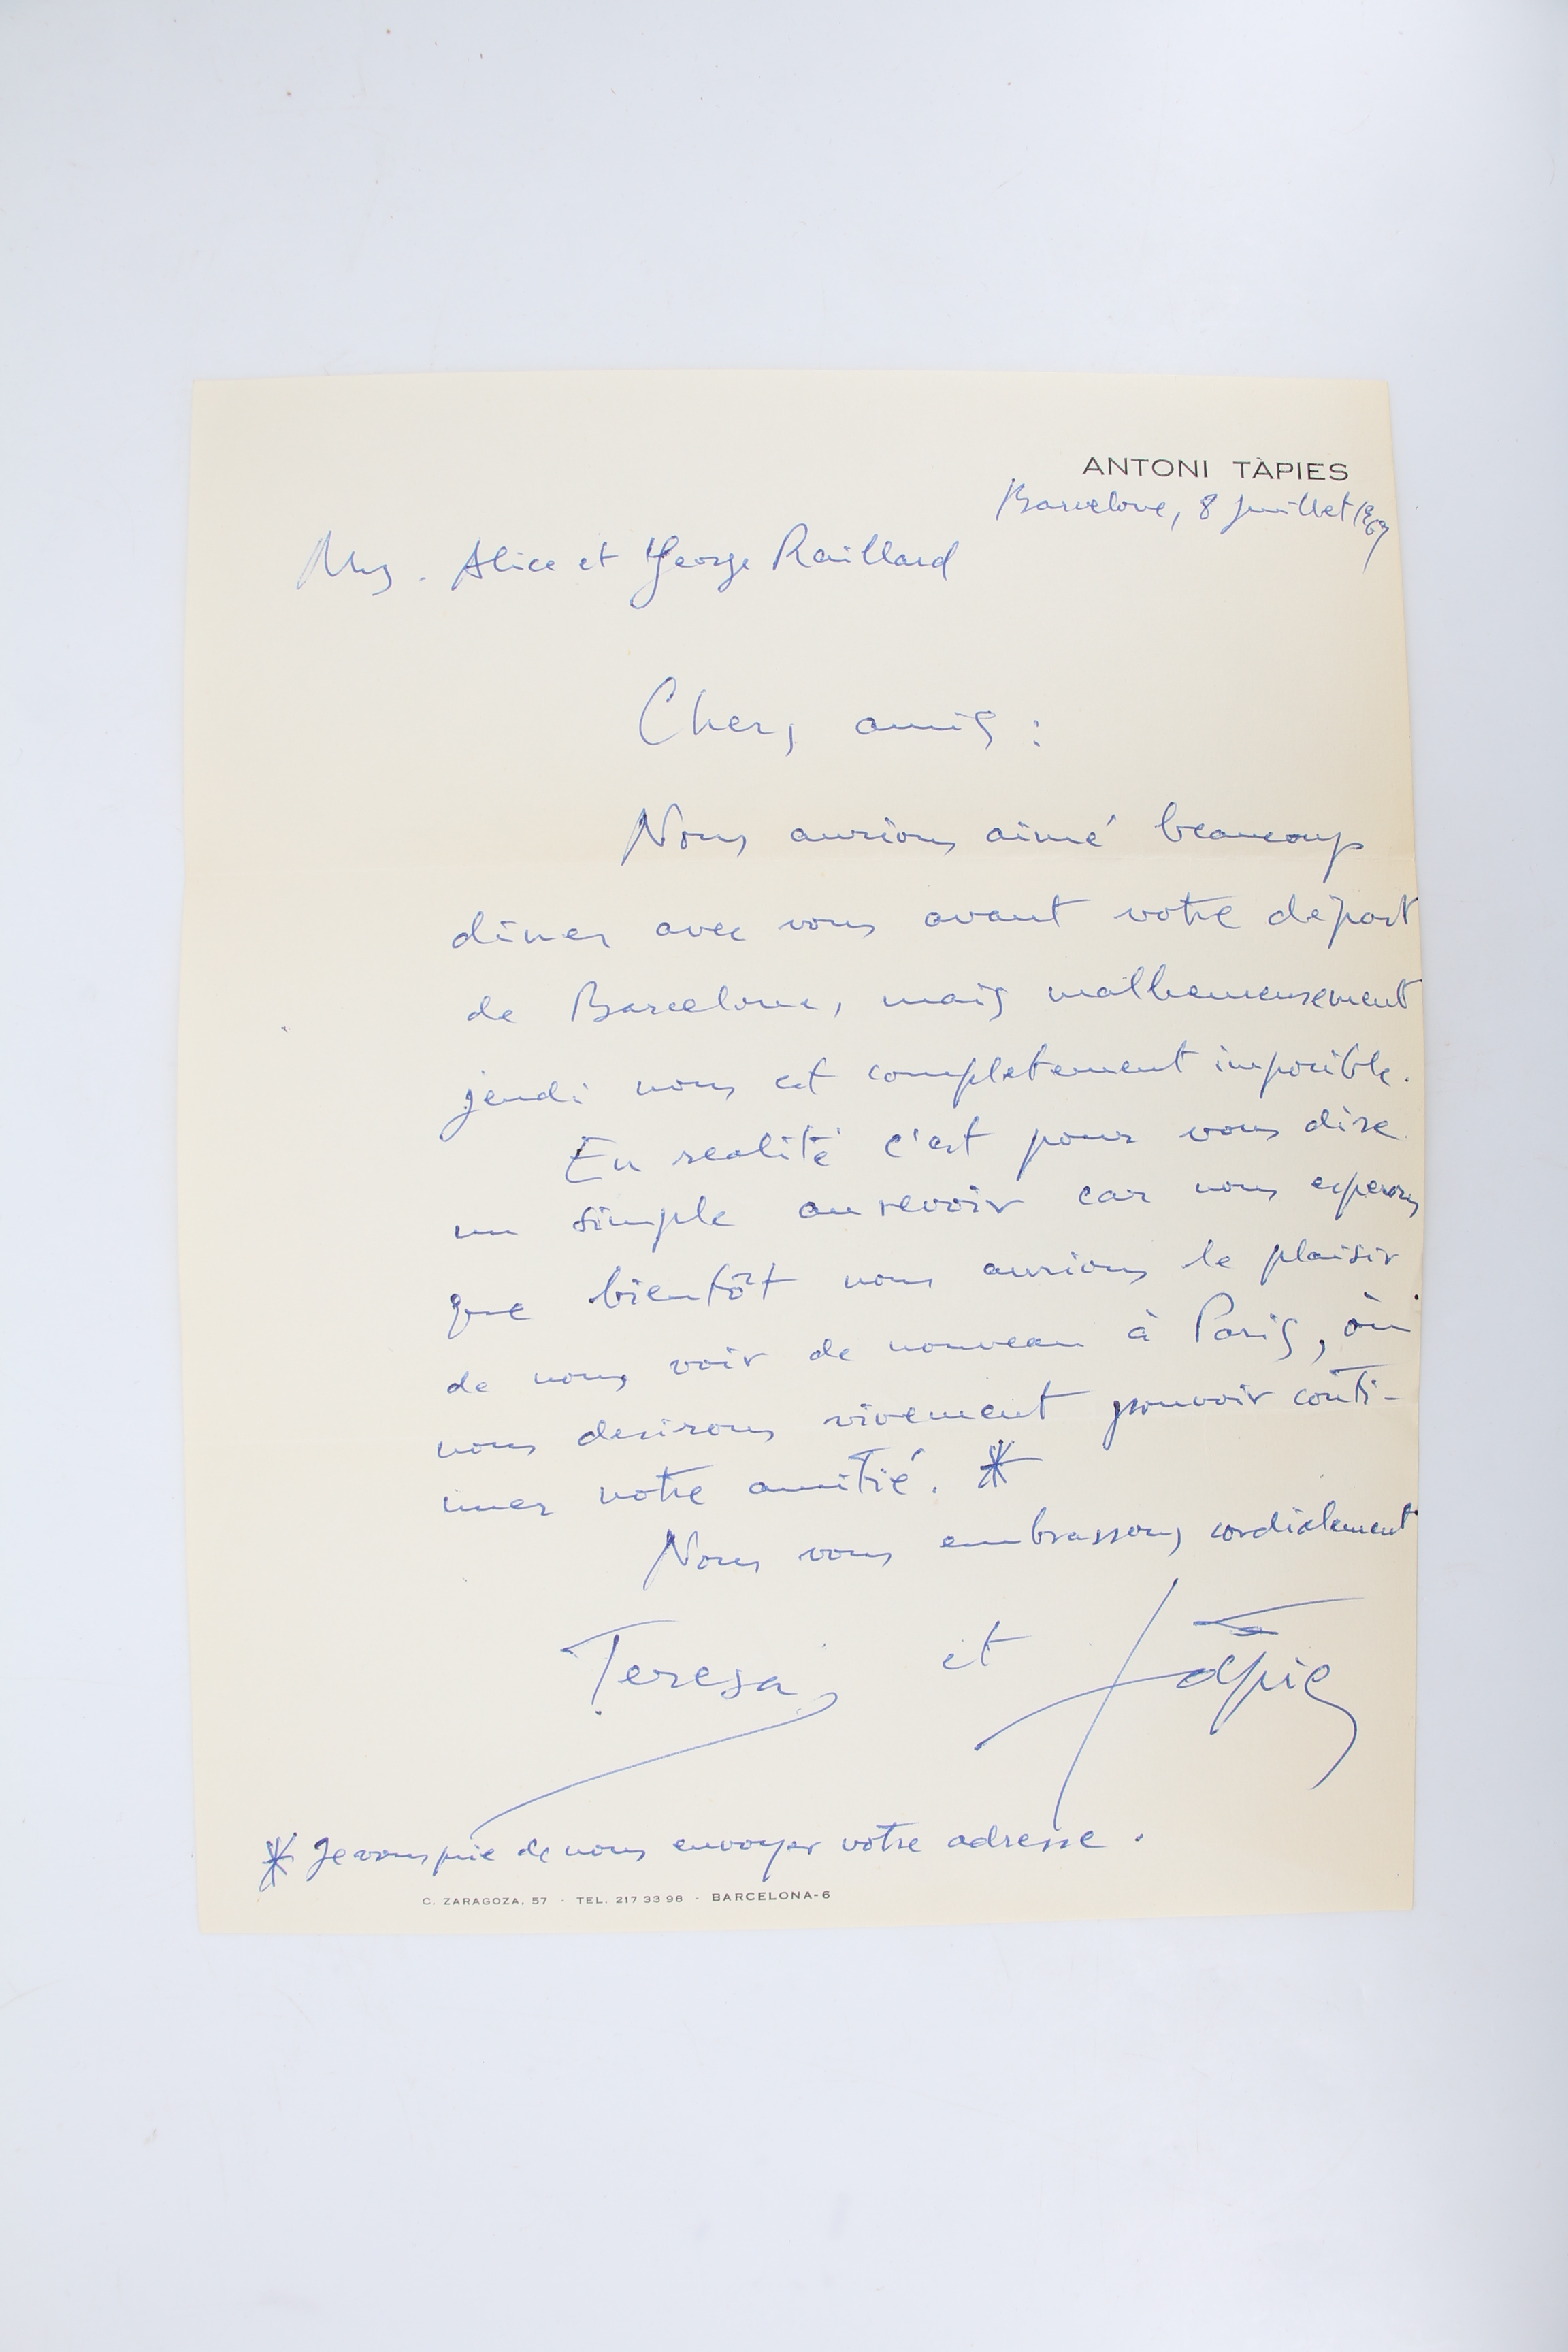 ANTONI TÀPIES
Barcelone, 8 juillet 1969
Mrs. Alice et George Raillard
Chers amis :
Nous aurions aimé beaucoup
diner avec vous avant votre dèpart
de Barcelone, mais malheureusement
jeudi nous est completement imposible.
En realité c'est pour vous dire
un simple au revoir car nous esperons
que bientôt nous aurions le plaisir
de nous voir de nouveau à Paris, où
nous desirons vivement pouvoir conti-
nuer notre amitié. *
Nous vous embrassons cordialement
Teresa et Tàpies
* Je vous prie de nous envoyer votre adresse.
C. ZARAGOZA, 57 - TEL. 217 33 98 - BARCELONA-6